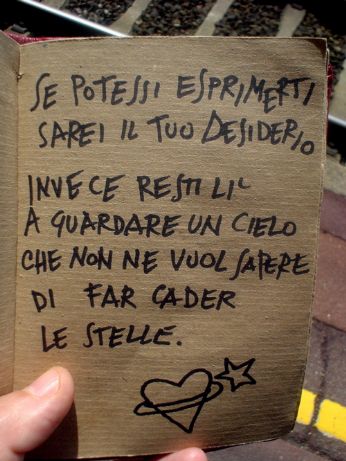 SE POTESSI ESPRIMERTI
SAREI IL TUO DESIDERIO
INVECE RESTI LI'
A GUARDARE UN CIELO
CHE NON NE VUOL SAPERE
DI FAR CADER
LE STELLE.